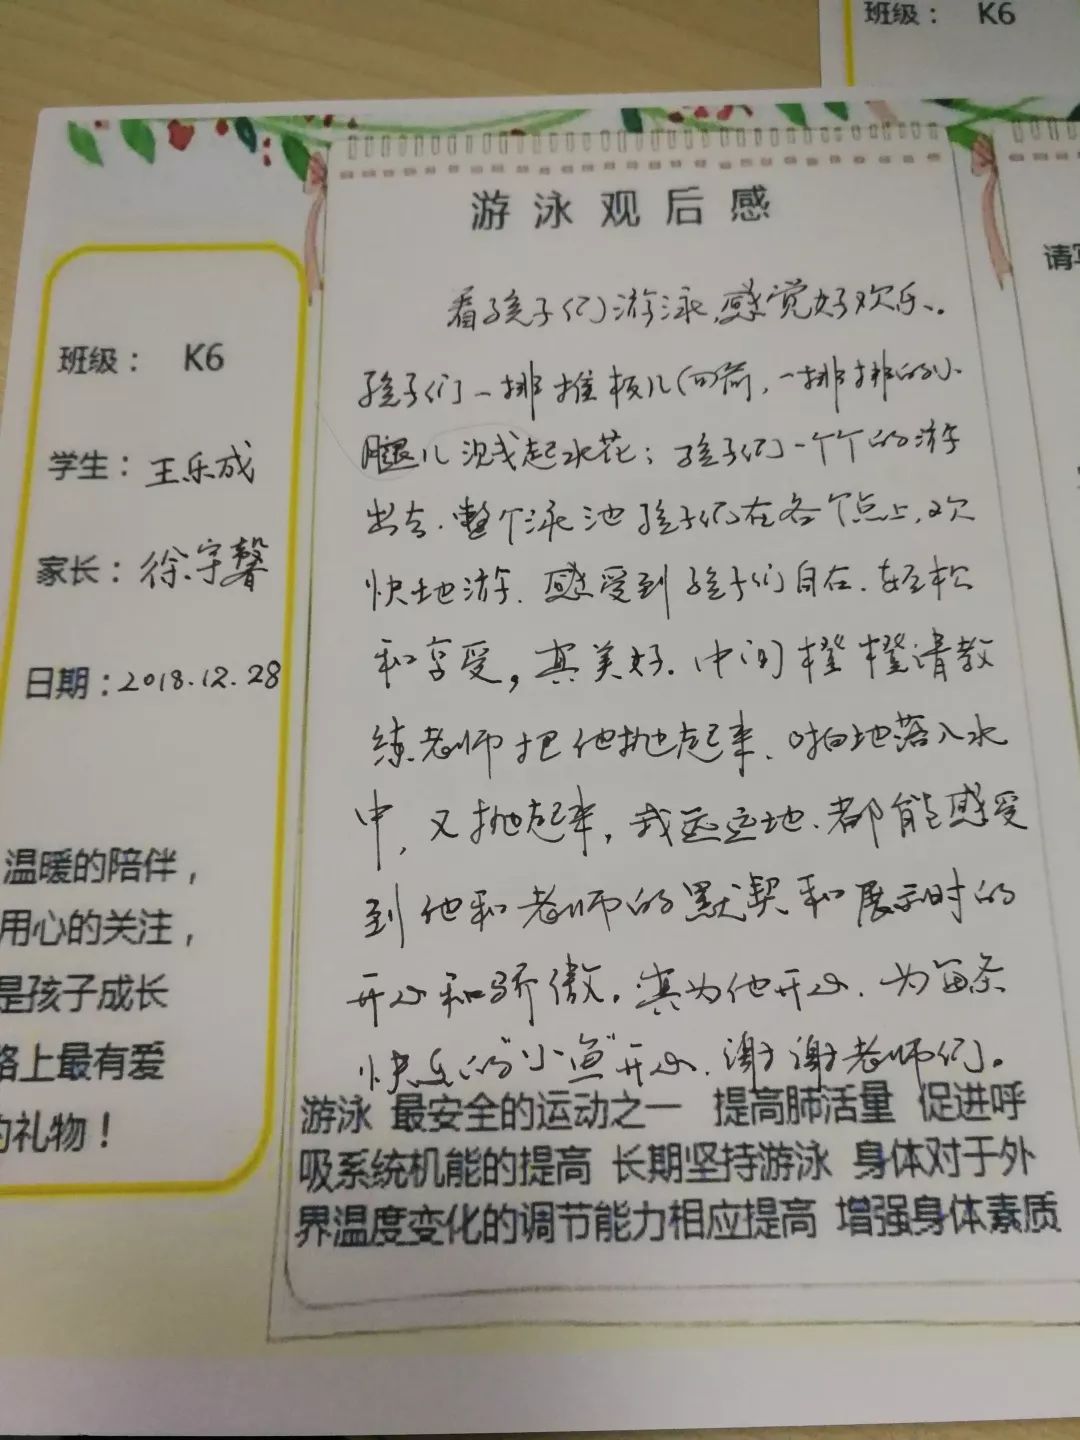 班级： K6
班级： K6
学生：王乐成
家长：徐宇馨
日期：2018.12.28
温暖的陪伴，
用心的关注，
是孩子成长
路上最有爱
的礼物！
游泳观后感
看孩子们游泳，感觉好欢乐。
孩子们一排推板儿向前，一排排的小
腿儿溅起水花；孩子们一个个的游
出去，整个泳池孩子们在各个点上，欢
快地游，感受到孩子们自在、轻松
和享受，真美好。中间橙橙请教
练老师把他抛起来，啪地落入水
中，又抛起来，我远远地，都能感受
到他和老师的默契和展示时的
开心和骄傲。真为他开心，为每条
快乐的“小鱼”开心，谢谢老师们。
游泳 最安全的运动之一 提高肺活量 促进呼
吸系统机能的提高 长期坚持游泳 身体对于外
界温度变化的调节能力相应提高 增强身体素质
请